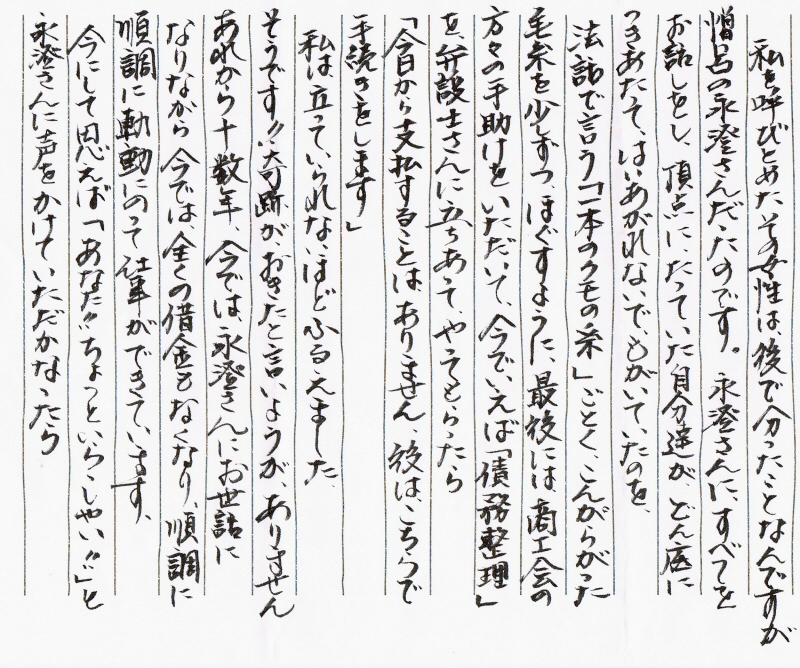 私を呼びとめたその女性は後で分ったことなんですが
僧呂の永澄さんだったのです。永澄さんに、すべてを
お話しをし、頂点にたっていた自分達が どん底に
つきあたって、はいあがれないで、もがいていたのを、
法話で言う「一本のクモの糸」ごとく、こんがらがった
毛糸を少しずつ、ほぐすように、最後には商工会の
方々の手助けをいただいて、今でいえば「債務整理」
を、弁設士さんに立ちあって、やってもらったら
「今日から支払することは ありません、後は、こちらで
手続きをします」
私は立っていられないほどふるえました。
そうです〃奇跡が、おきたと言いようが、ありません
あれから十数年、今では、永澄さんにお世話に
なりながら 今では、全くの借金もなくなり、順調に
順調に軌動にのって 仕事ができています、
今にして思えば「あなた〃ちょっといらっしゃい〃」と
永澄さんに声をかけていただかなったら